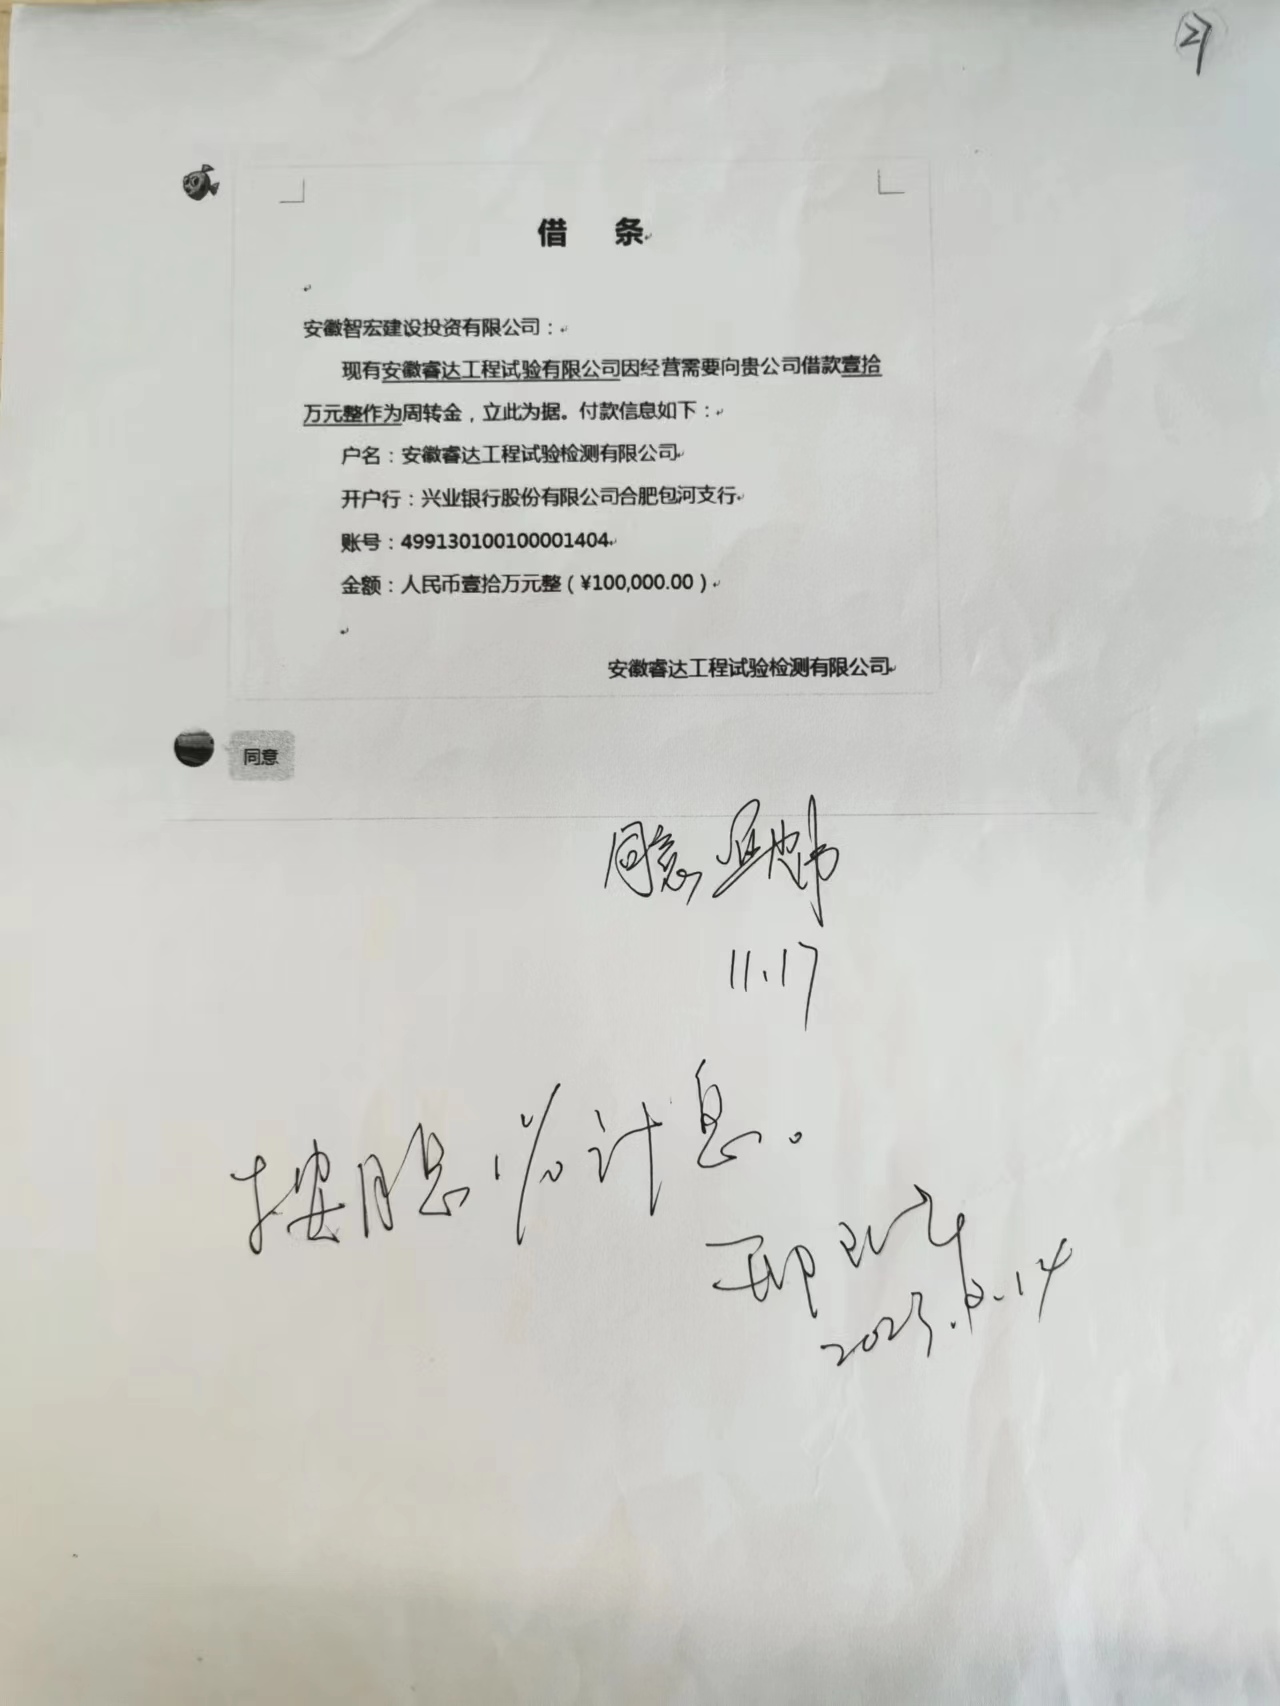 27
借 条
安徽智宏建设投资有限公司：
现有安徽睿达工程试验有限公司因经营需要向贵公司借款壹拾
万元整作为周转金，立此为据。付款信息如下：
户名：安徽睿达工程试验检测有限公司
开户行：兴业银行股份有限公司合肥包河支行
账号：499130100100001404
金额：人民币壹拾万元整（¥100,000.00）
安徽睿达工程试验检测有限公司
同意
同意
11.17
按月息1%计息。